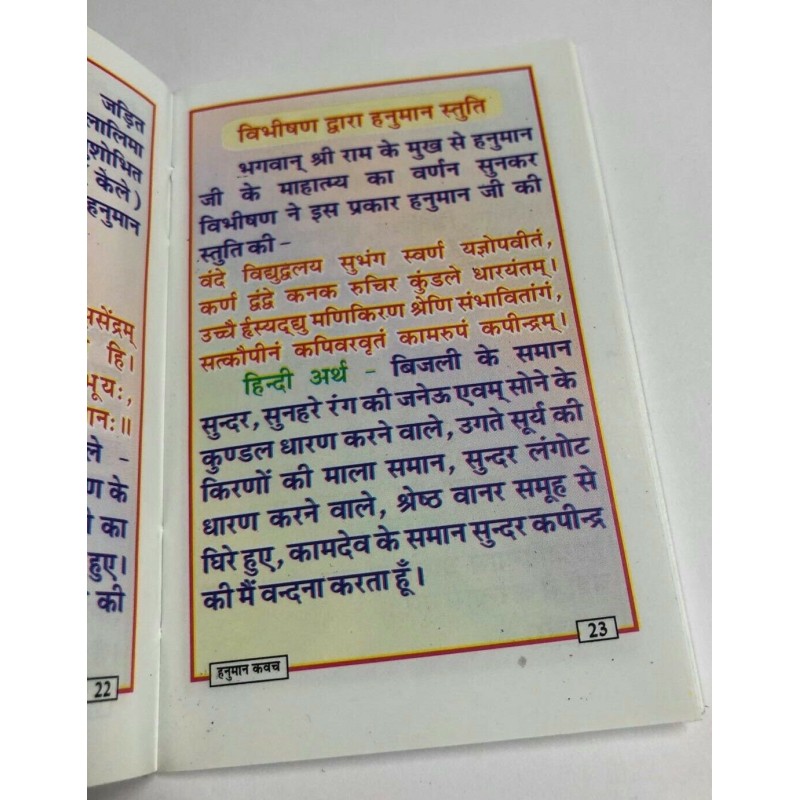 जड़ित
लालिमा
शोभित
केले)
हनुमान
सेंद्रम्
हि।
भूयः,
नः॥
ले -
ण के
का
हुए।
की
22
विभीषण द्वारा हनुमान स्तुति
भगवान् श्री राम के मुख से हनुमान
जी के माहात्म्य का वर्णन सुनकर
विभीषण ने इस प्रकार हनुमान जी की
स्तुति की -
वंदे विद्युद्वलय सुभंग स्वर्ण यज्ञोपवीतं,
कर्ण द्वंद्वे कनक रुचिर कुंडले धारयंतम्।
उच्चै र्हृस्यद्द्यु मणिकिरण श्रेणि संभावितांगं,
सत्कौपीनं कपिवरवृतं कामरुपं कपीन्द्रम्।
हिन्दी अर्थ - बिजली के समान
सुन्दर, सुनहरे रंग की जनेऊ एवम् सोने के
कुण्डल धारण करने वाले, उगते सूर्य की
किरणों की माला समान, सुन्दर लंगोट
धारण करने वाले, श्रेष्ठ वानर समूह से
घिरे हुए, कामदेव के समान सुन्दर कपीन्द्र
की मैं वन्दना करता हूँ।
हनुमान कवच
23